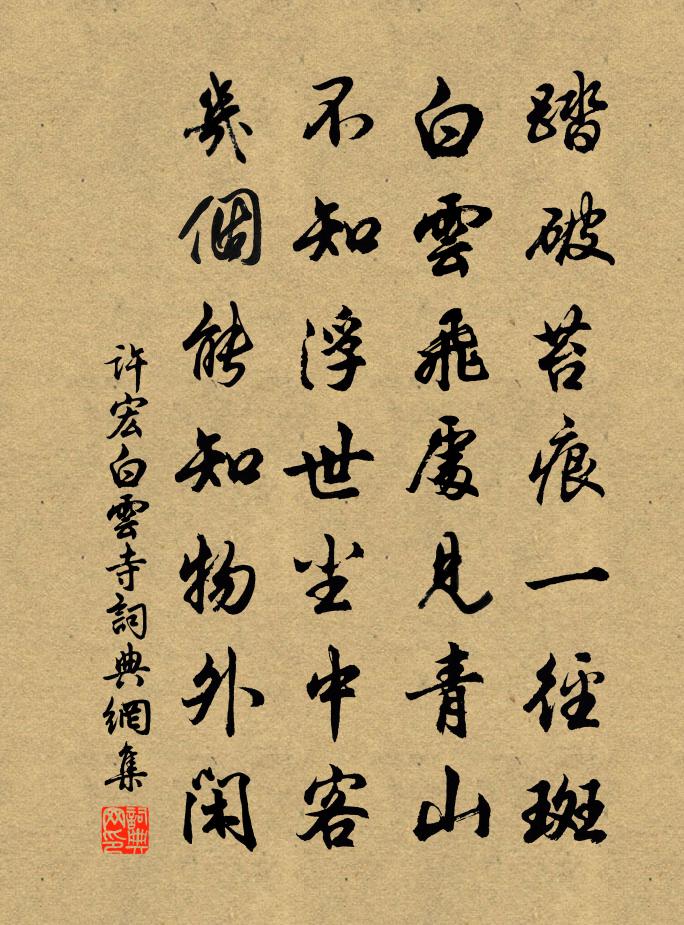 踏破苔痕一徑斑
白雲飛處見青山
不知浮世塵中客
幾個能知物外閑
許宏白雲寺詞典網集
詞典网印